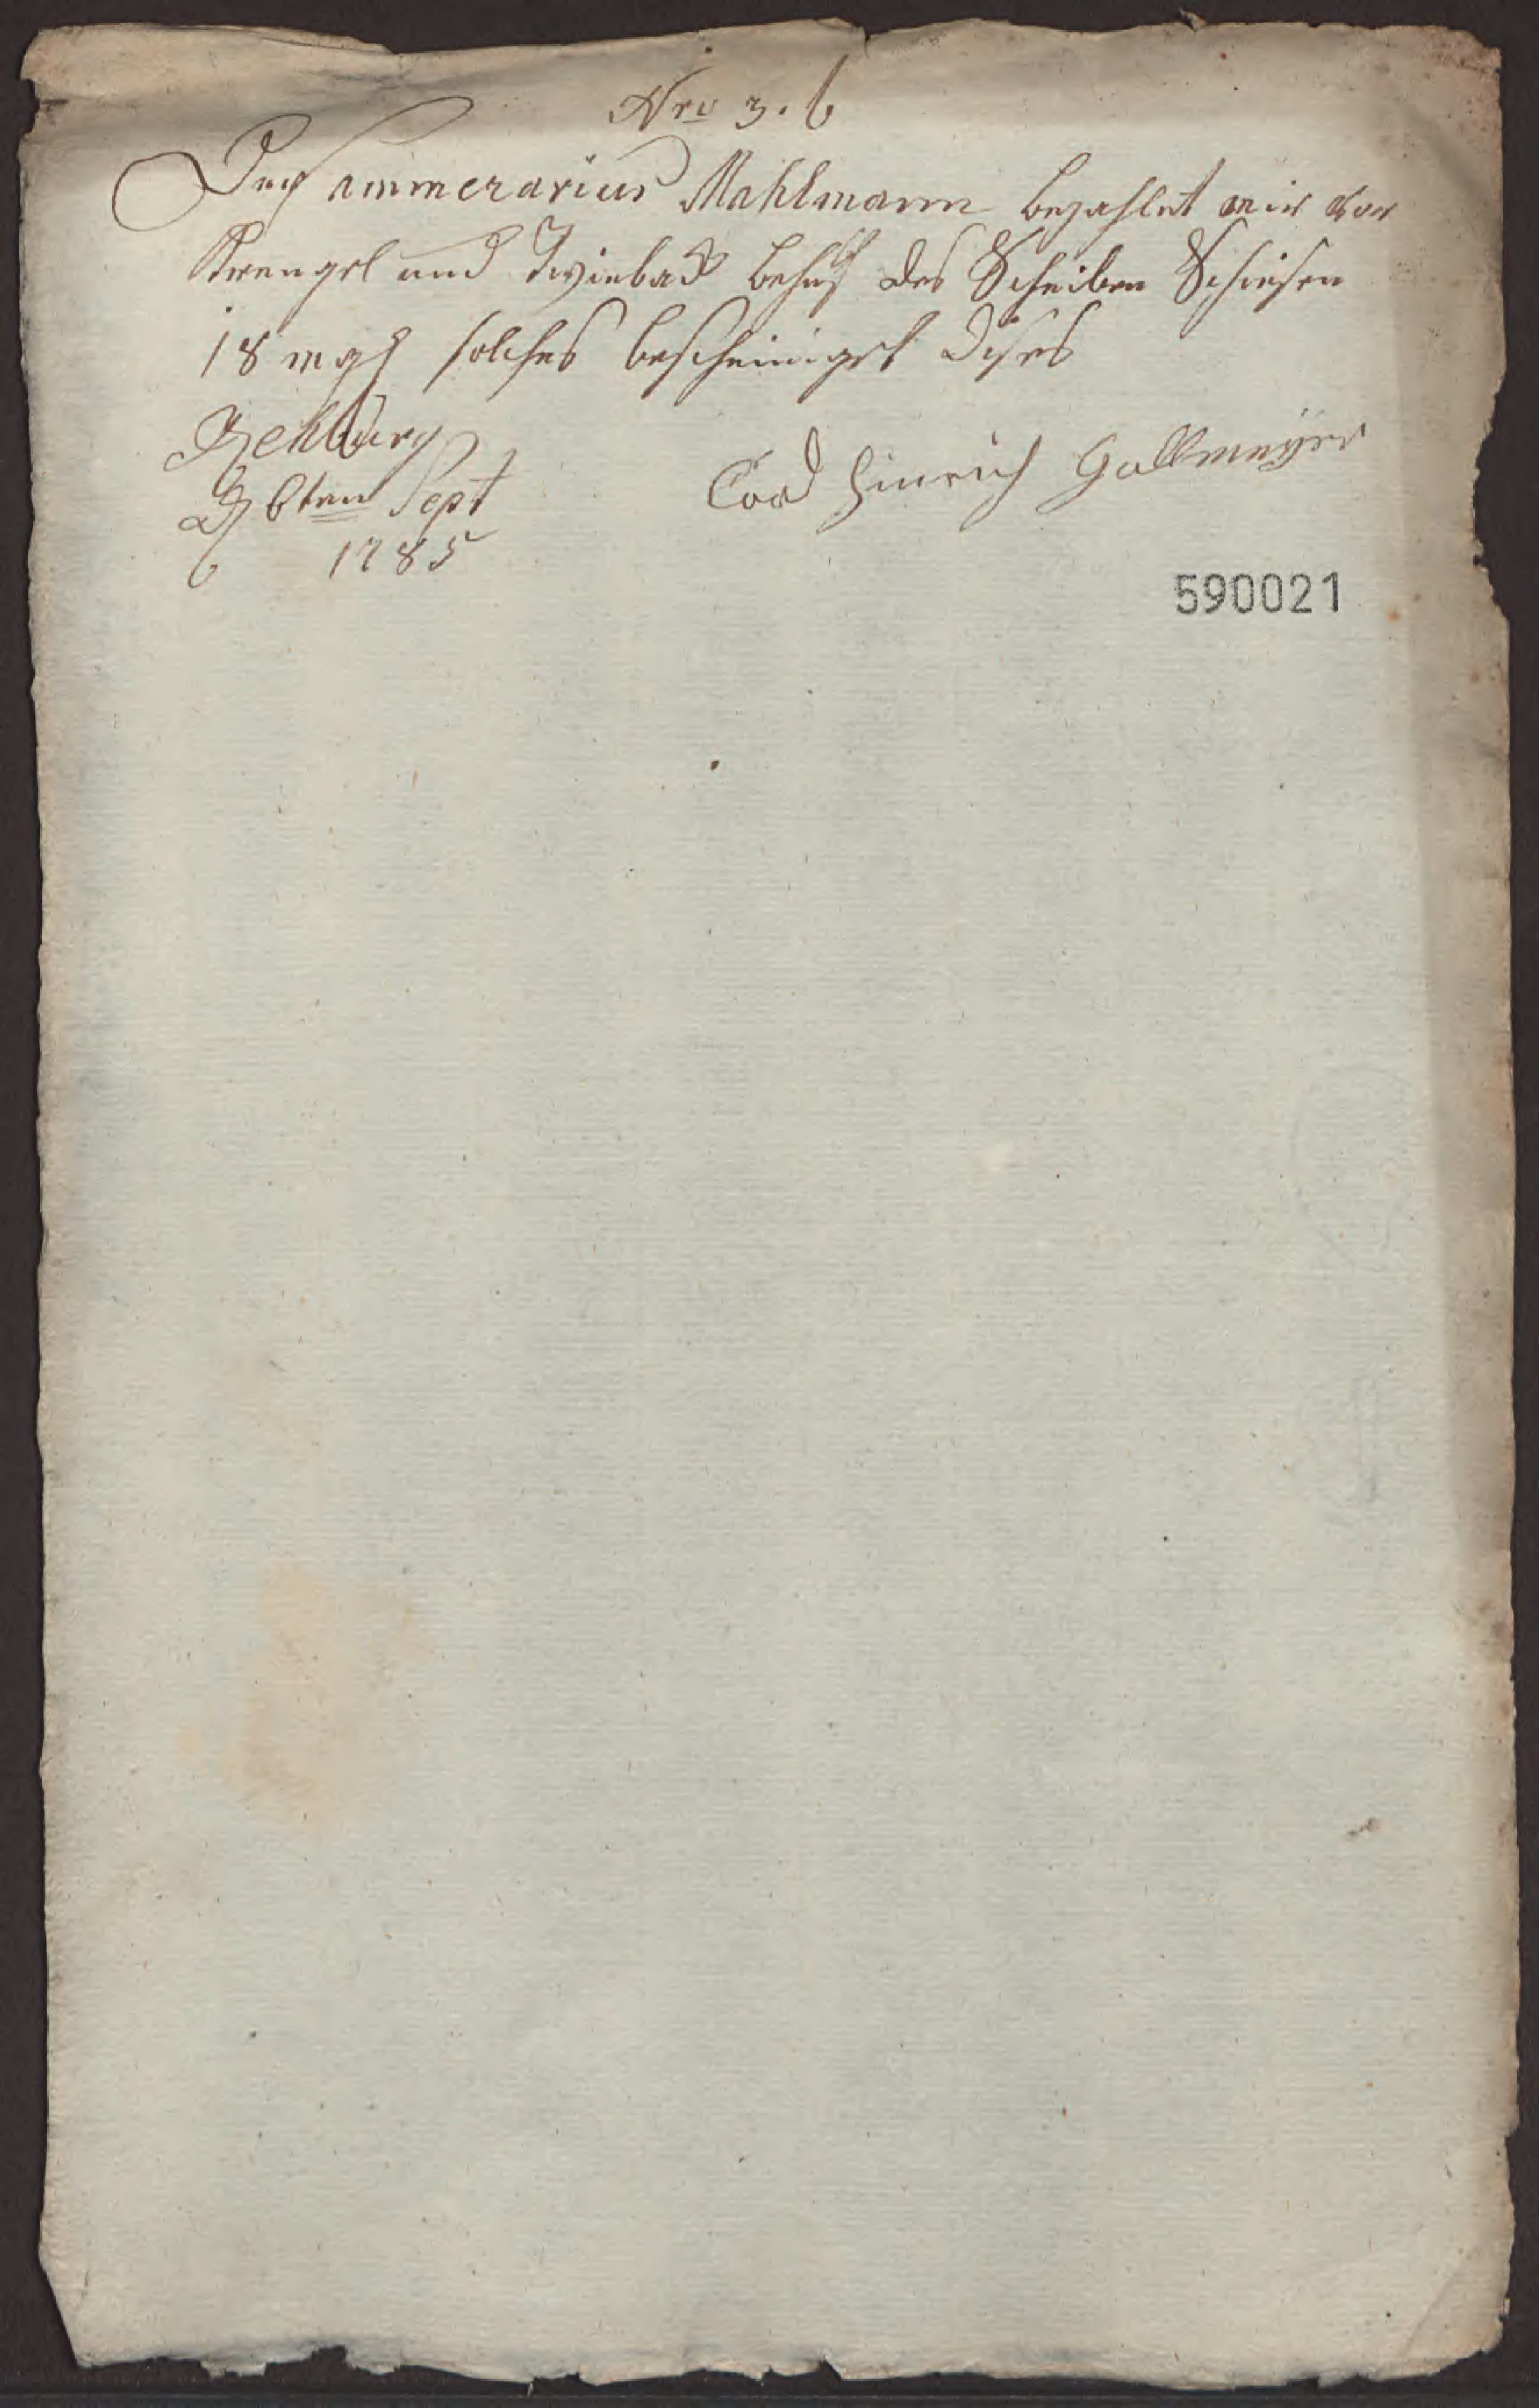 Nro 3. b
Der Cammerarius Mahlmann bezahlet mir vor
Krengel und Twieback behuf des Scheiben Schiesen
18 mgl solches bescheiniget dises
Rehburg
D 6ten Sept
1785
Cord Hinrich Gallmeÿer
590021